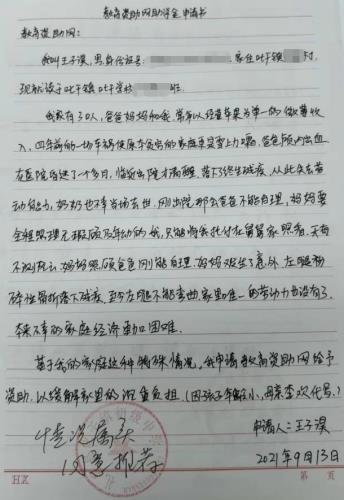 教育资助网助学金申请书
教育资助网：
我叫王子漠，男，身份证号：，家住吐干镇村
现就读于吐干镇吐学校班
我家有了口人，爸爸妈妈和我，常年以经营苹果为单一的微薄收
入，四年前的一场车祸使原本贫困的家庭更是雪上加霜。爸爸颅内出血
在医院昏迷了一个多月，临近出院才有清醒，落下了终生残疾，从此失去劳
动能力，奶奶也不幸当场去世，刚出院那会爸爸不能自理，妈妈要
全程照理无瑕顾及年幼的我，只能将我托付在舅舅家照看，天有
不测风云，妈妈照顾爸爸刚能自理，妈妈又发生了意外，左腿粉
碎性骨折落下残疾，至今左腿不能弯曲，家里唯一的劳动力也没有了，
本来不幸的家庭经济更加困难。
基于我的家庭这种特殊情况，我申请教育资助网给予
资助，以缓解家里的沉重负担（因孩子年龄小，母亲李欢代书。）
情况属实
同意推荐
申请人：王子漠
2021年9月13日
HX
第 页